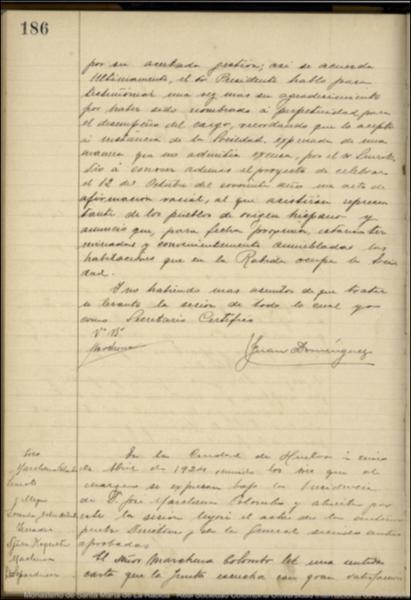 186
por su acertada gestión; así se acuerda
Ultimamente, el Sr. Presidente habla para
testimoniar una vez mas su agradecimiento
por haber sido nombrado á perpetuidad para
el desempeño del cargo, recordando que lo aceptó
á instancia de la Sociedad, expresada de una
manera que no admitia excusa, por el Sr.
Dió á conocer ademas el proyecto de celebrar
el 12 de Octubre del corriente año un acto de
afirmacion racial, al que asistirán represen
tantes de los pueblos de origen hispano y
anunció que, para fecha proxima, estarán ter
minadas y convenientemente amuebladas las
habitaciones que en la Rabida ocupa la Socie
dad.
Y no habiendo mas asuntos de que tratar
se levantó la sesion de todo lo cual yo
como Secretario Certifico
Vº Bº
Marchena
Juan Dominguez
Sres
Marchena Colombo
En la Ciudad de Huelva á
de Abril de 1924 reunidos los Sres que al
margen se expresan bajo la Presidencia
de D. José Marchena Colombo y abierta por
este la sesion
aprobadas
El Señor Marchena Colombo leé una sentida
carta que la Junta escucha con gran satisfaccion